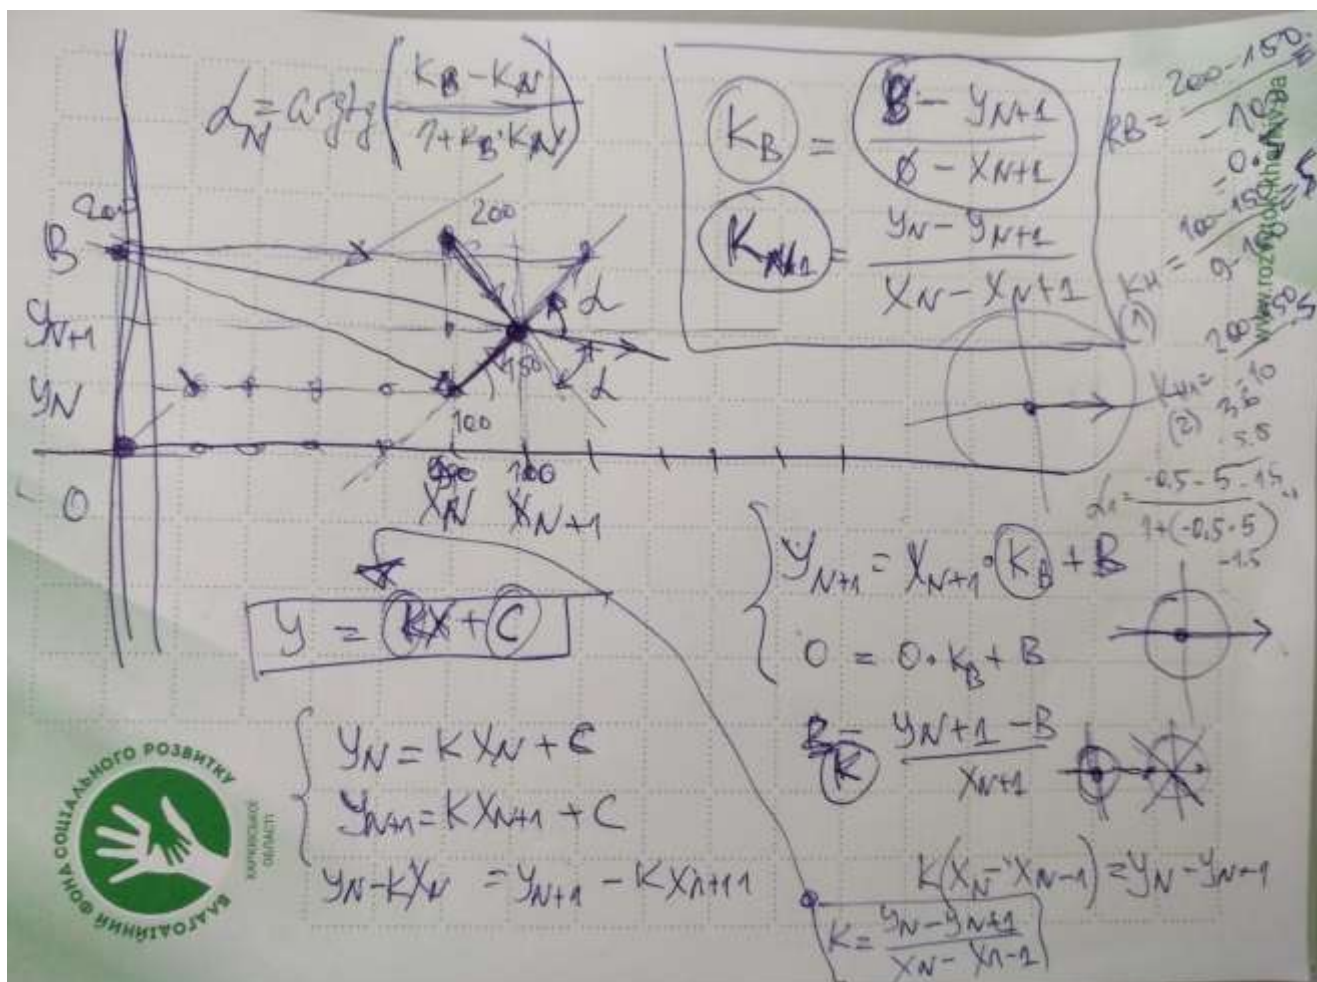 α_N = arctg( (K_B - K_N) / (1 + K_B · K_N) )
K_B = (B - y_{N+1}) / (0 - x_{N+1})
K_{N+1} = (y_N - y_{N+1}) / (x_N - x_{N+1})
200 - 150
KB =
= 0.
100 - 150
= 5
KH =
(1)
200
(2)
-0.5 - 5
α_1 =
1 + (-0.5 · 5)
-1.5
www.rozvytok.kharkiv.ua
200
200
B
α
y_{N+1}
α
150
y_N
100
0
90 100
X_N X_{N+1}
y = KX + C
y_{N+1} = X_{N+1} · K_B + B
0 = 0 · K_B + B
K = (y_{N+1} - B) / X_{N+1}
y_N = KX_N + C
y_{n+1} = KX_{n+1} + C
y_N - KX_N = y_{N+1} - KX_{n+1}
K(X_N - X_{N-1}) = y_N - y_{N+1}
K = (y_N - y_{N+1}) / (X_N - X_{n-1})
БЛАГОДІЙНИЙ ФОНД СОЦІАЛЬНОГО РОЗВИТКУ
ХАРКІВСЬКОЇ
ОБЛАСТІ